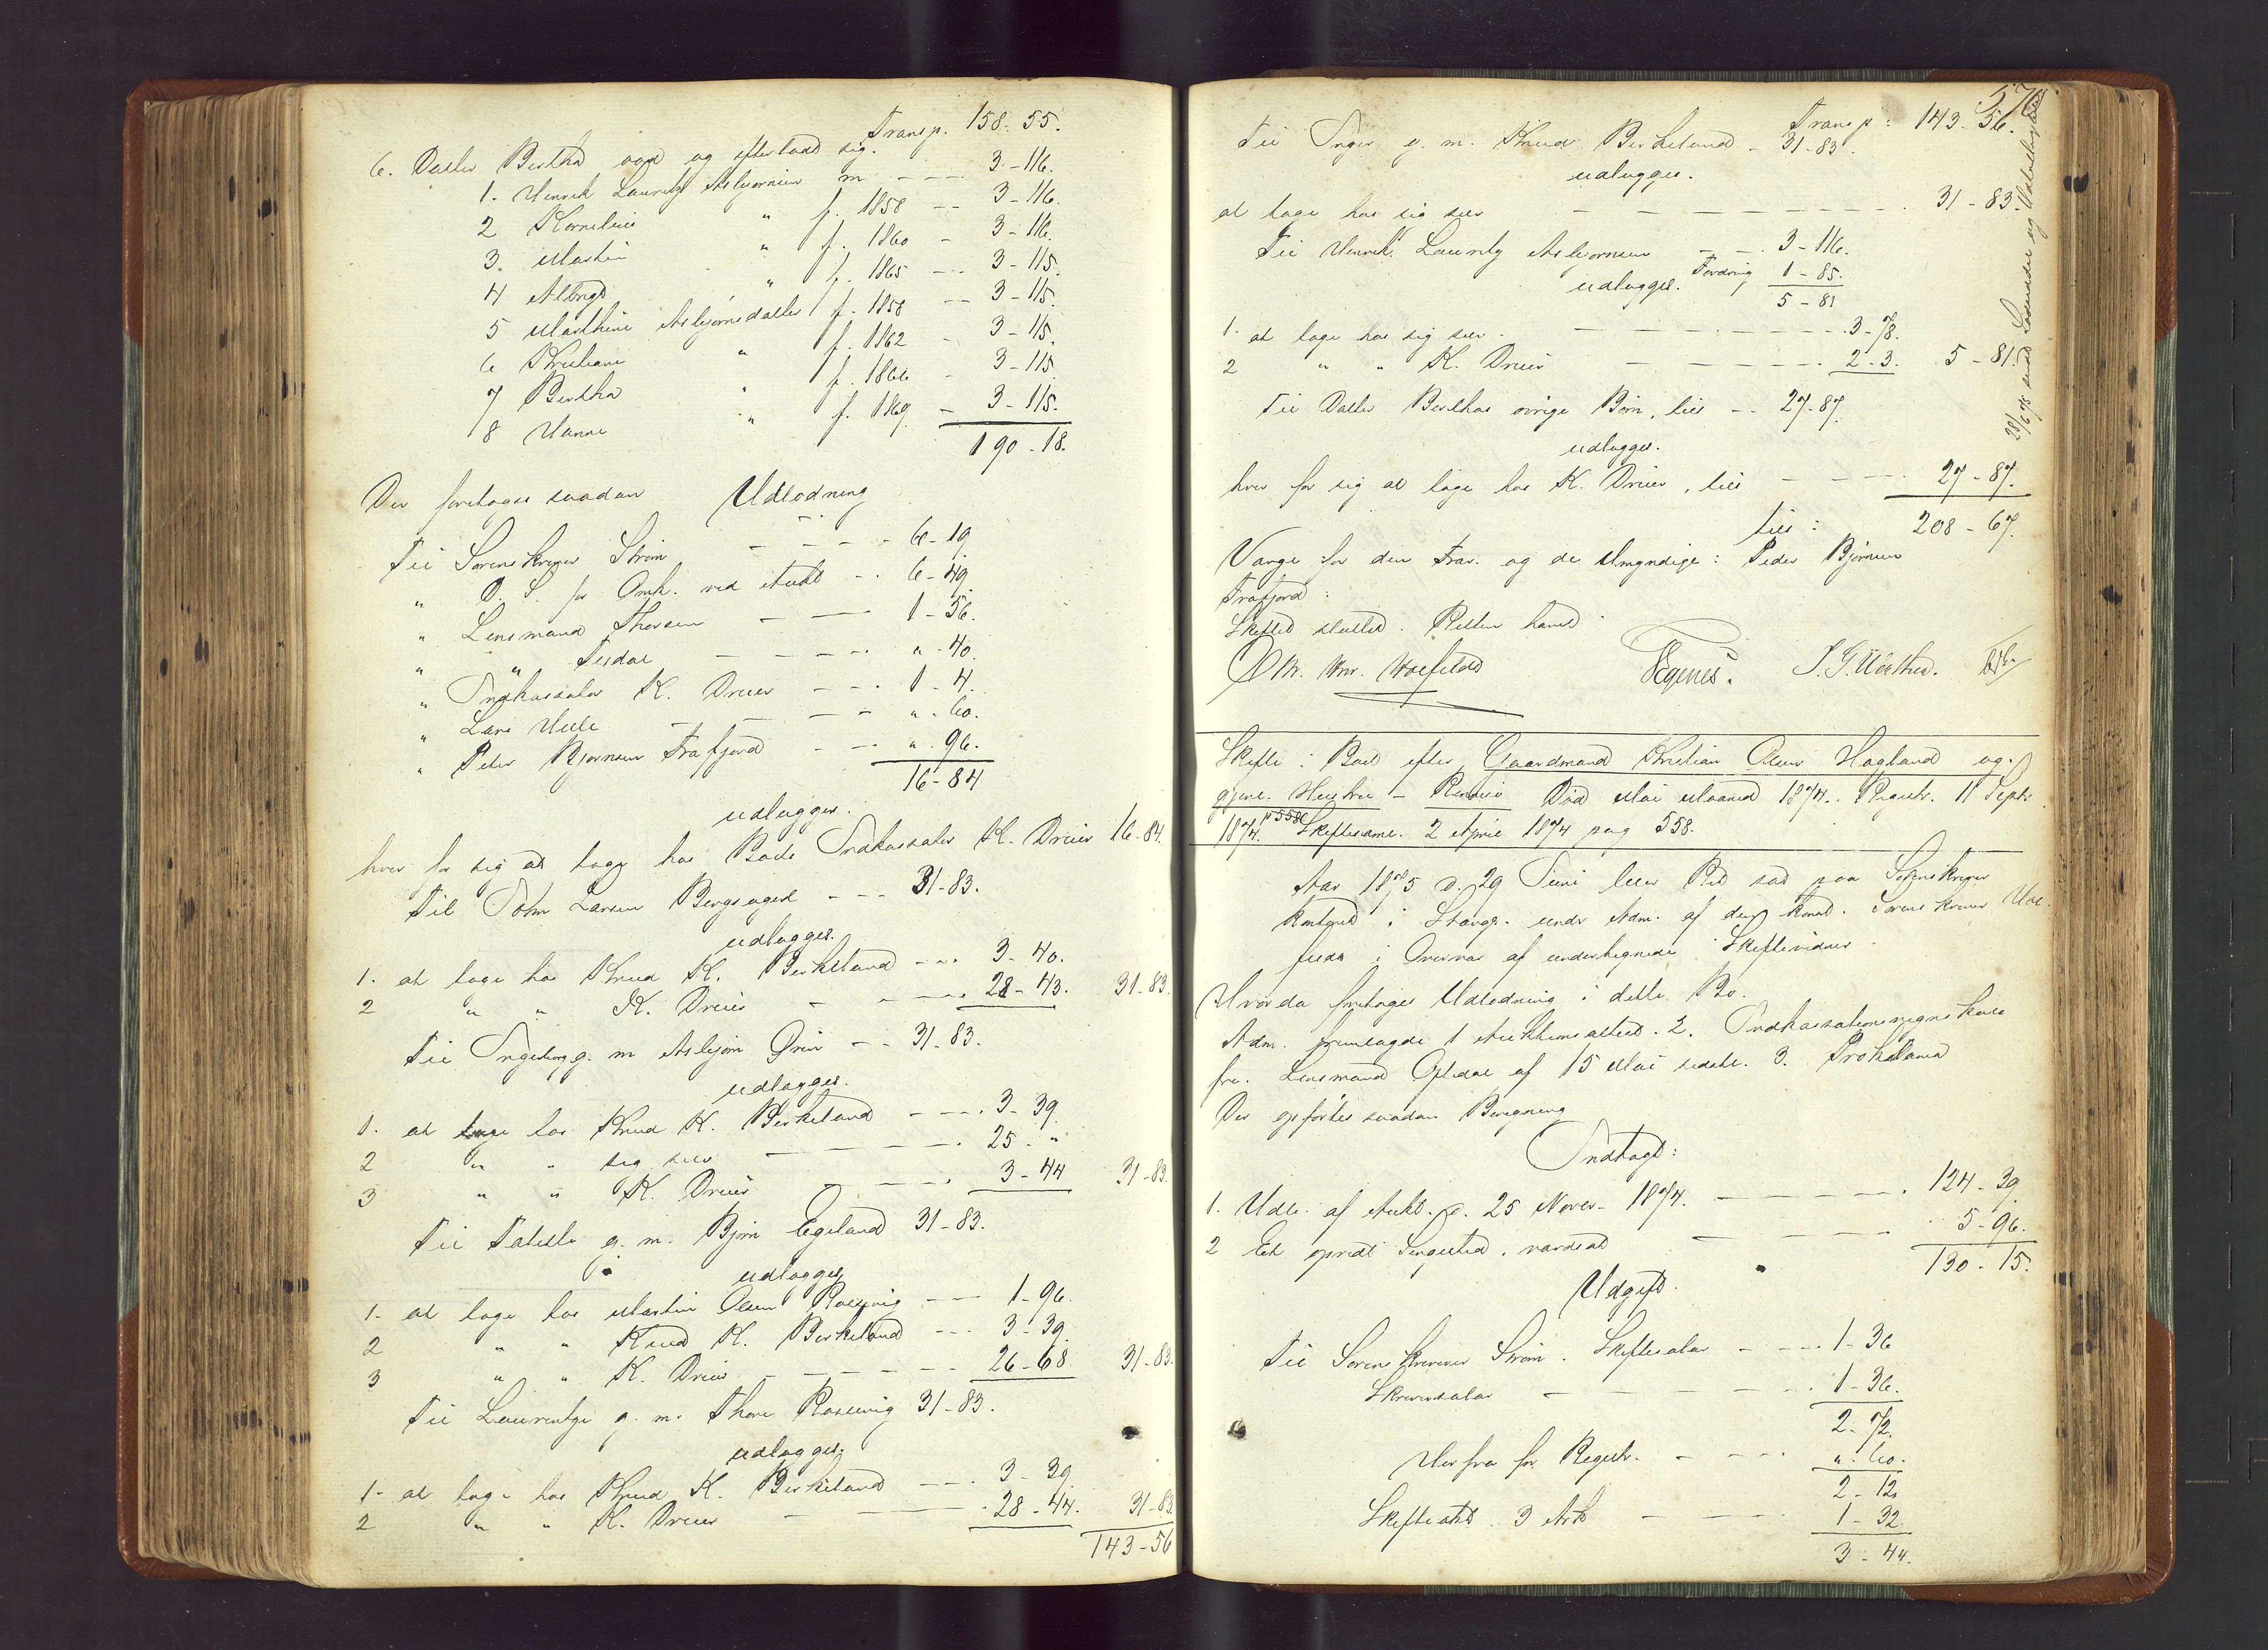 Transp. 158-55.
6. Datter Bertha død og efterladt sig.
1. Henrik Lauritz Asbjørnsen m - - - 3-116.
2 Kornelius " f. 1858 - - 3-116.
3. Martin " f. 1860 - 3-116.
4 " f. 1865 - - 3-115.
5 Marthine Asbjørnsdatter f. 1858 - - 3-115.
6 Kristiane " f. 1862 - 3-115.
7 Bertha " f. 1866 - 3-115.
8 Hanne " f. 1869 - 3-115.
190-18.
Der foretoges saadan Udlodning
Til Sorenskriver Strøm - - - - 6-19
" D. S. for Omk. ved Aukt - - 6-49.
" Lensmand Thorsen - - 1-56.
" " Tisdal - - - - " - 40.
" Indkassator K. Dreier - - - 1-4.
" Lars Helle - - - - " - 60.
" Peder Bjørnsen Frafjord - - - " - 96.
16-84
udlægges.
hver for sig at tage hos Boets Indkassator K. Dreier 16-84.
Til John Larsen Bergsaged - - - 31-83.
udlægges.
1. at tage hos Knud K. Birkeland - - - 3-40.
2 " " K. Dreier - - - - 28-43. 31-83.
Til Ingeborg g. m. Asbjørn - - 31-83.
udlægges.
1. at tage hos Knud K. Birkeland - - - 3-39
2 " " sig selv - - - - 25-"
3 " " K. Dreier - - - 3-44 31-83.
Til g. m. Bjørn Egeland 31-83.
udlægges
1. at tage hos Martin Olsen - - 1-96.
2 " " Knud K. Birkeland - - - 3-39.
3 " " K. Dreier - - - - 26-68 31-83.
Til Laurentze g. m. Thore 31-83.
udlægges.
1. at tage hos Knud K. Birkeland - - - 3-39
2 " " K. Dreier - - - 28-44. 31-83
143-56
576
Transp: 143-56.
Til Inger g. m. Knud Birkeland - 31-83.
udlægges.
at tage hos sig selv - - - - - - - 31-83.
Til Henrik Lauritz Asbjørnsen - - 3-116.
udlægges. Fordring 1-85.
5-81
1. at tage hos sig selv - - - - - 3-78.
2 " " K. Dreier - - - - - 2-3. 5-81.
Til Datter Berthas øvrige Børn, tils - - 27-87.
udlægges.
hver for sig at tage hos K. Dreier, tils - - - - 27-87.
tils: 208-67.
Værge for den Frav. og de Umyndige: Peder Bjørnsen
Frafjord:
Skiftet sluttet. Retten hævet.
Egenes. S. G.
Skifte i Boet efter Gaardmand Kristian Olsen Hagland og
gjenl. Hustru - Død Mai Maaned 1874. Registr. 11 Septr
1874. p 558 Skiftesaml. 2 April 1874 pag 558.
Aar 1875 d. 29 Juni blev Ret sat paa Sorenskriver
kontoret i Stavgr. under Adm. af den konst. Sorenskriver Hoe-
feldt i Overvær af undertegnede Skiftevidner.
Hvorda foretoges Udlodning i dette Bo.
Adm. fremlagde 1 Auktionsattest. 2. Indkassationsregnskab
fra Lensmand Optedal af 15 Mai sidstl. 3. Proklama
Der opførtes saadan Beregning
Indtægt:
1. Udb. af Aukt. d. 25 Nover. 1874. - - - - - 124-39
2 Et Sengested, værdsat - - - - 5-96.
130-15.
Udgift.
Til Sorenskriver Strøm. Skiftesalar - - - 1-36
Skriversalar - - - 1-36.
2-72.
Herfra for Registr. - - - " - 60.
2-12
Skifteakt. 3 Ark - - - 1-32.
3-44.